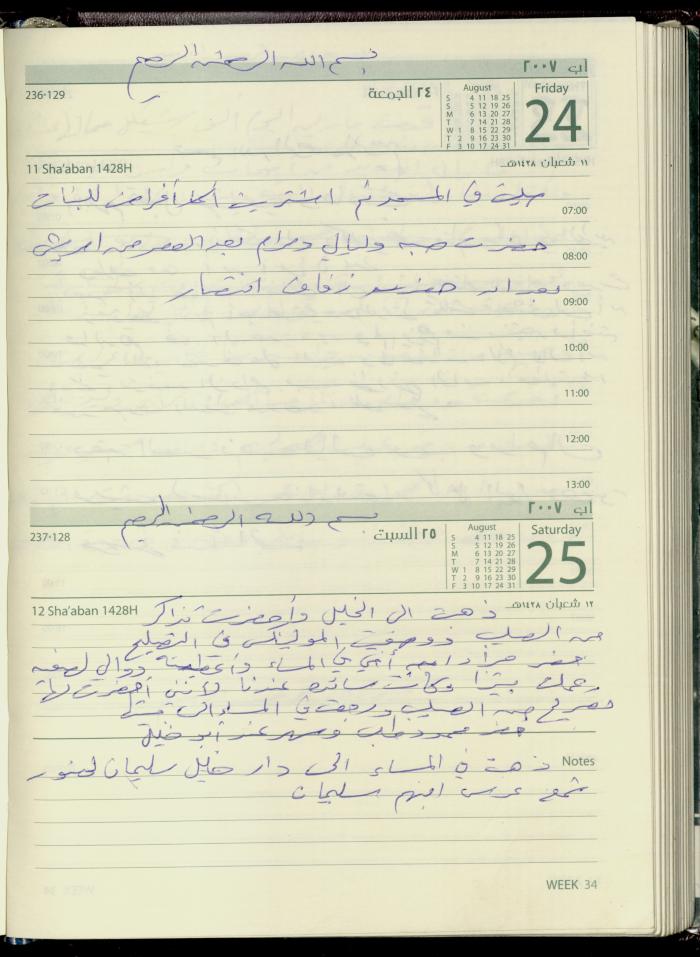 بسم الله الرحمن الرحيم
آب ٢٠٠٧
236-129
٢٤ الجمعة
August
S 4 11 18 25
S 5 12 19 26
M 6 13 20 27
T 7 14 21 28
W 1 8 15 22 29
T 2 9 16 23 30
F 3 10 17 24 31
Friday
24
11 Sha'aban 1428H
١١ شعبان ١٤٢٨هـ
صليت في المسجد ثم اشتريت أقراص للبنات
07:00
حضرت هبه وليالي ومرام بعد العصر من
08:00
بعد ان حضرت زفاف انتصار
09:00
10:00
11:00
12:00
13:00
بسم الله الرحمن الرحيم
آب ٢٠٠٧
237-128
٢٥ السبت
August
S 4 11 18 25
S 5 12 19 26
M 6 13 20 27
T 7 14 21 28
W 1 8 15 22 29
T 2 9 16 23 30
F 3 10 17 24 31
Saturday
25
12 Sha'aban 1428H
١٢ شعبان ١٤٢٨هـ
ذهبت الى الخليل وأحضرت تذاكر
من الصليب ووضعت المولينكس في التصليح
حضر أخي في المساء وأعطيته دوالي
وعملت بيتزا وكانت عندنا لأنني أحضرت لها
تصريح من الصليب ورجعت في المساء الى بيتها
حضر محمود وسهر عند
Notes
ذهبت في المساء الى دار خليل سليمان لحضور
شمع عرس ابنهم سليمان
WEEK 34